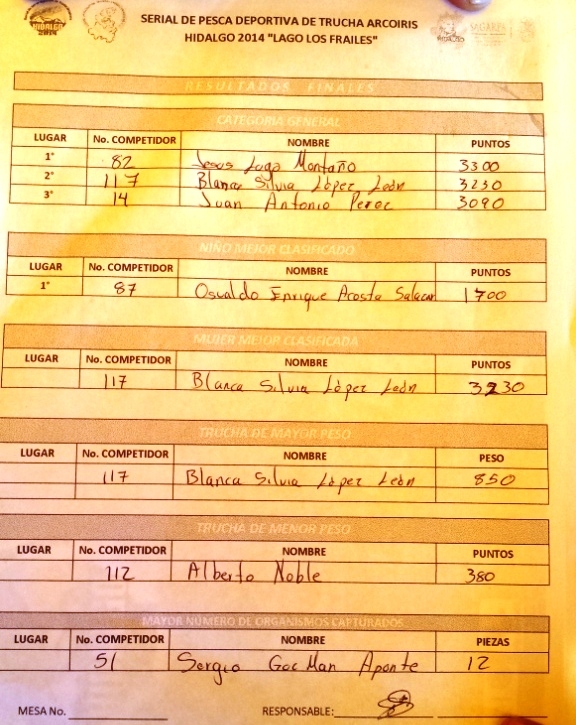 SERIAL DE PESCA DEPORTIVA DE TRUCHA ARCOIRIS
HIDALGO 2014 "LAGO LOS FRAILES"
RESULTADOS FINALES
CATEGORIA GENERAL
LUGAR No. COMPETIDOR NOMBRE PUNTOS
1° 82 Jesus Lugo Montaño 3300
2° 117 Blanca Silvia López León 3230
3° 14 Juan Antonio Perec 3090
NIÑO MEJOR CLASIFICADO
LUGAR No. COMPETIDOR NOMBRE PUNTOS
1° 87 Osvaldo Enrique Acosta 1700
MUJER MEJOR CLASIFICADA
LUGAR No. COMPETIDOR NOMBRE PUNTOS
117 Blanca Silvia López León 3230
TRUCHA DE MAYOR PESO
LUGAR No. COMPETIDOR NOMBRE PESO
117 Blanca Silvia López León 850
TRUCHA DE MENOR PESO
LUGAR No. COMPETIDOR NOMBRE PUNTOS
112 Alberto Noble 380
MAYOR NÚMERO DE ORGANISMOS CAPTURADOS
LUGAR No. COMPETIDOR NOMBRE PIEZAS
51 Sergio Aponte 12
MESA No. RESPONSABLE: